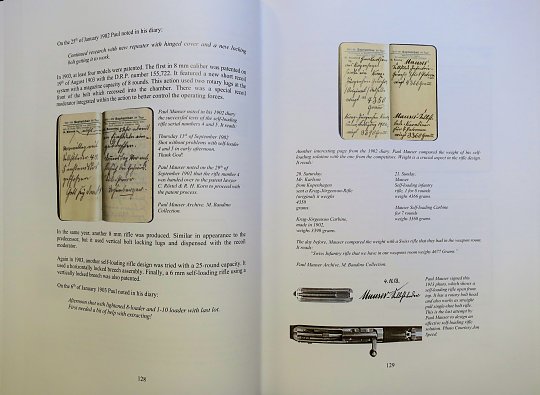 On the 25th of January 1902 Paul noted in his diary:
Continued research with new repeater with hinged cover and a new locking
bolt getting it to work.
In 1903, at least four models were patented. The first in 8 mm caliber was patented on
19th of August 1903 with the D.R.P. number 155,722. It featured a new short recoil
system with a magazine capacity of 8 rounds. This action used two rotary lugs at the
front of the bolt which recessed into the chamber. There was a special recoil
moderator integrated within the action to better control the operating forces.
Paul Mauser noted in his 1902 diary
the successful tests of the self-loading
rifle serial numbers 4 and 5. It reads:
Thursday 13th of September 1902
Shot without problems with self-loader
4 and 5 in early afternoon.
Thank God!
Paul Mauser noted on the 29th of
September 1902 that the rifle number 4
was handed over to the patent lawyer
C. Röstel & R. H. Korn to proceed with
the patent process.
Paul Mauser Archive. M. Baudino
Collection.
In the same year, another 8 mm rifle was produced. Similar in appearance to the
predecessor, but it used vertical bolt locking lugs and dispensed with the recoil
moderator.
Again in 1903, another self-loading rifle design was tried with a 25-round capacity. It
used a horizontally locked breech assembly. Finally, a 6 mm self-loading rifle using a
vertically locked breech was also patented.
On the 6th of January 1905 Paul noted in his diary:
Afternoon shot with lightened 8-loader and 1-10 loader with last lot.
First needed a bit of help with extracting!
128
Another interesting page from the 1902 diary. Paul Mauser compared the weight of his self-
loading solution with the one from the competitors. Weight is a crucial aspect in the rifle design.
It reads:
20. Saturday.
Mr. Karlson
from Kopenhagen
sent a Krag-Jörgenson-Rifle
(original) it weighs
4350
grams
Krag-Jörgenson Carbine,
made in 1902,
weighs 3390 grams.
21. Sunday.
Mauser
Self-loading infantry
rifle, 1 for 8 rounds
weighs 4366 grams
Mauser Self-loading Carbine
for 7 rounds
weighs 3360 grams.
The day before, Mauser compared the weight with a Swiss rifle that they had in the weapon room.
It reads:
"Swiss Infantry rifle that we have in our weapon room weighs 4677 Grams."
Paul Mauser Archive. M. Baudino Collection.
Paul Mauser signed this
1913 photo, which shows a
self-loading rifle open from
top. It has a rotary bolt head
and also works as straight
pull single-shot bolt rifle.
This is the last attempt by
Paul Mauser to design an
effective self-loading rifle
solution. Photo Courtesy Jon
Speed.
129